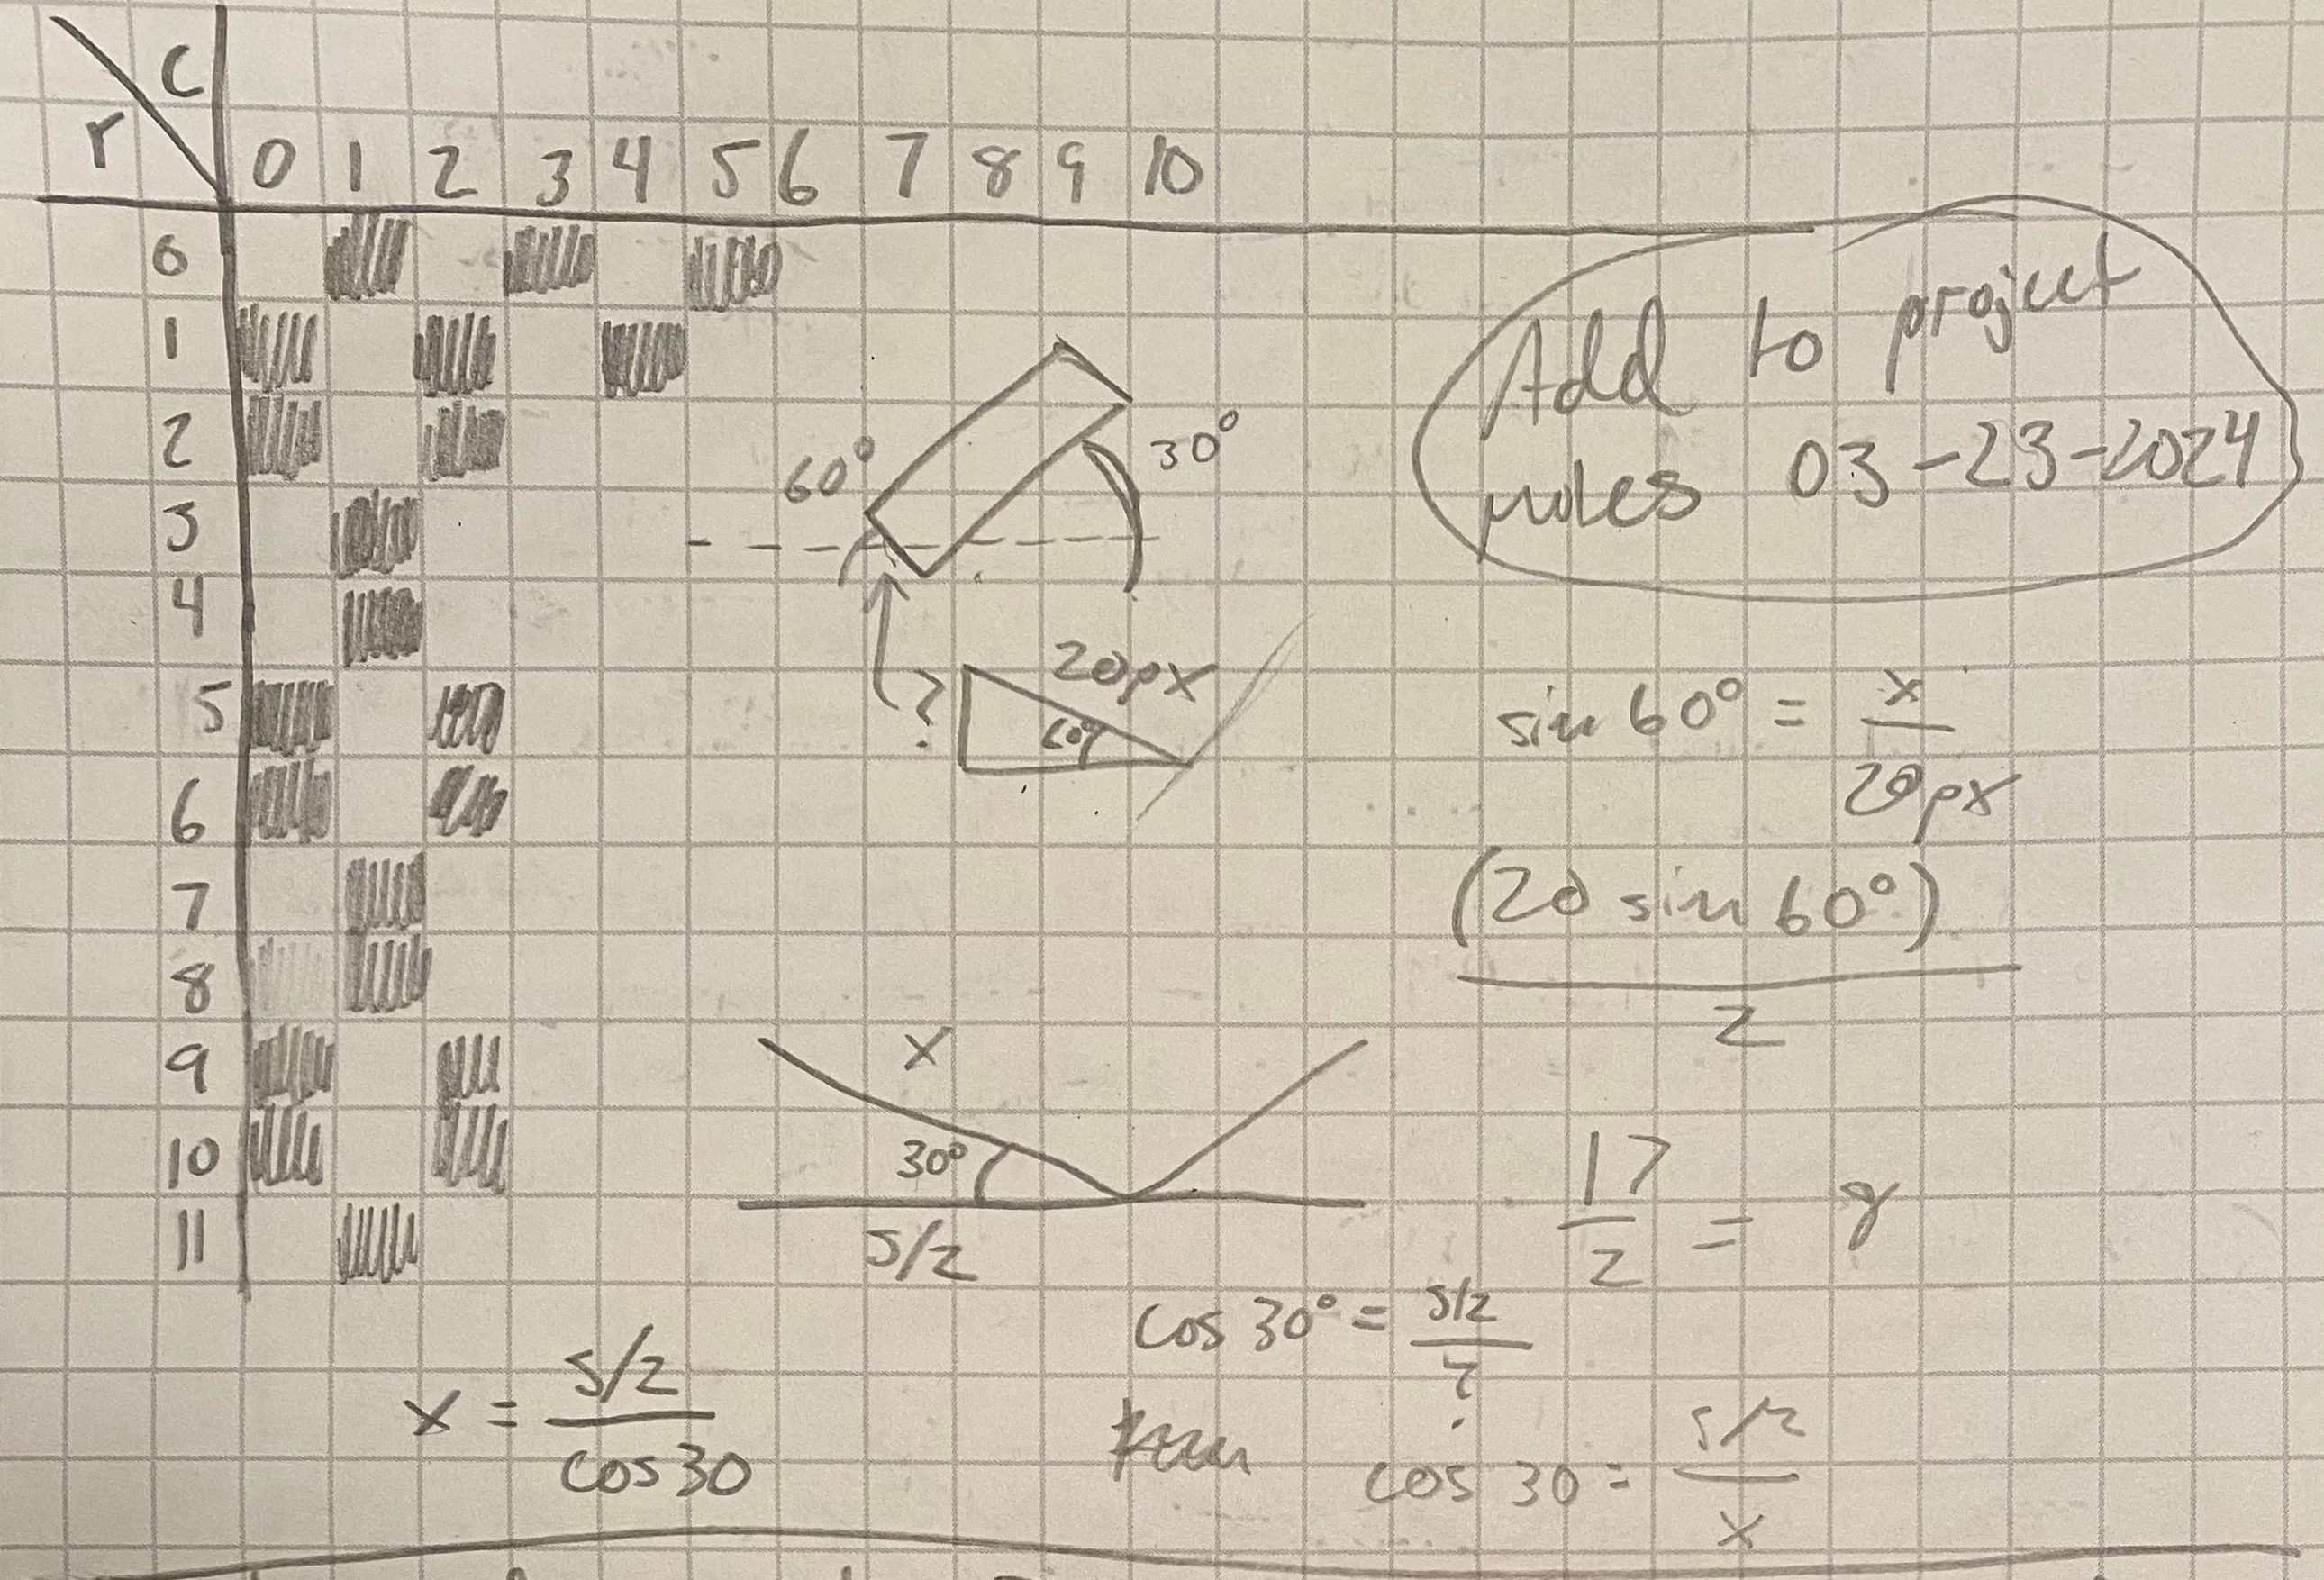 c
r
0 1 2 3 4 5 6 7 8 9 10
0
1
2
3
4
5
6
7
8
9
10
11
60°
30°
Add to project
notes 03-23-2024
?
20px
60°
sin 60° = x
20px
(20 sin 60°)
2
x
30°
s/2
17
2
=
cos 30° = s/2
?
x = s/2
cos 30
cos 30 = s/2
x